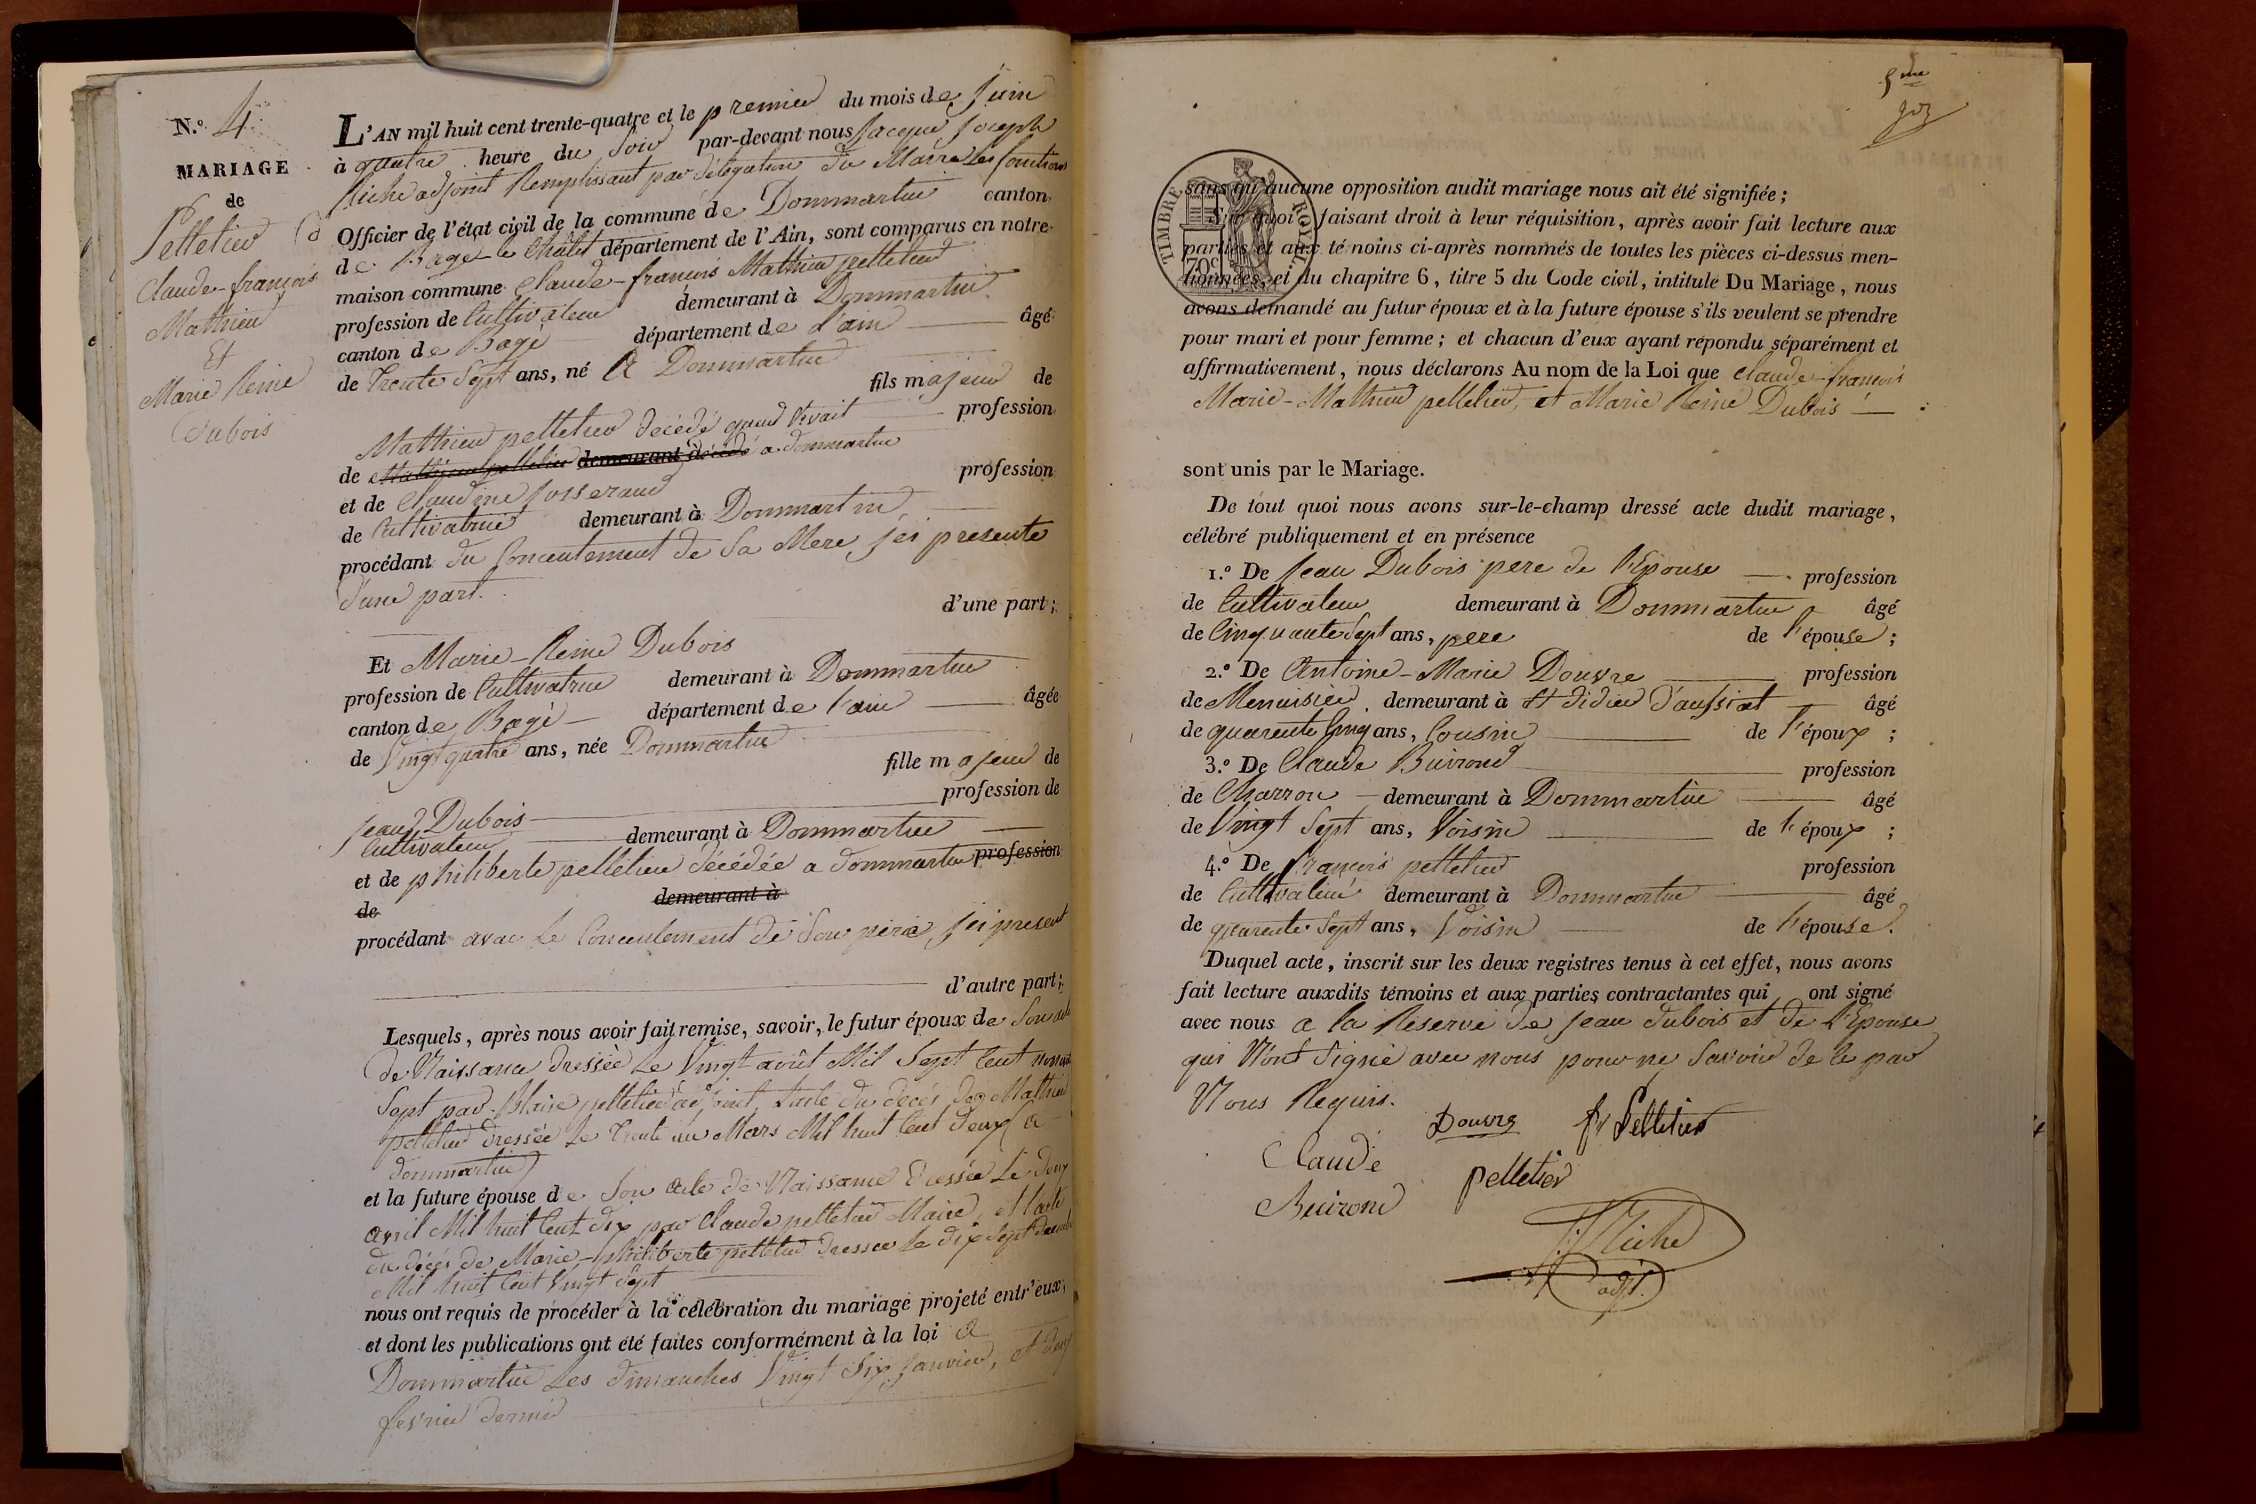 N.° 4
MARIAGE
de
Pelletier
Claude-françois
Mathieu
Et
Marie Reine
Dubois
L'AN mil huit cent trente-quatre et le premier du mois de Juin
à quatre heure du Soir par-devant nous Jacque Joseph
Riche adjoint Remplissant par délégation du Maire les fonctions
Officier de l'état civil de la commune de Dommartin canton
de Bagé le Châtel département de l'Ain, sont comparus en notre
maison commune Claude-françois Mathieu pelletier
profession de Cultivateur demeurant à Dommartin
canton de Bagé département de l'ain âgé
de Trente Sept ans, né A Dommartin
fils majeur de
Mathieu pelletier décédé quand vivait profession
de Mathieu pelletier demeurant décédé a dommartin
et de Claudine Josserand profession
de Cultivatrice demeurant à Dommartin
procédant du Concentement de Sa Mere J'ci presente
d'une part.
d'une part;
Et Marie-Reine Dubois
profession de Cultivatrice demeurant à Dommartin
canton de Bagé département de l'ain âgée
de Vingt quatre ans, née Dommartin
fille majeur de
profession de
Jean Dubois
Cultivateur demeurant à Dommartin
et de philiberte pelletier décédée a dommartin profession
de demeurant à
procédant avec le Concentement de Son père J'ci present
d'autre part;
Lesquels, après nous avoir fait remise, savoir, le futur époux de Son acte
de Naissance dressée Le Vingt août Mil Sept Cent nonante
Sept par Blaise pelletier adjoint, l'acte du décés de Mathieu
pelletier dressée Le Trente un Mars Mil huit Cent deux a
dommartin
et la future épouse de Son acte de Naissance Dressée Le Douze
avril Mil huit Cent dix par Claude pelletier Maire, et l'acte
du décés de Marie-philiberte pelletier dressée Le dix Sept
Mil huit Cent Vingt Sept
nous ont requis de procéder à la célébration du mariage projeté entr'eux,
et dont les publications ont été faites conformément à la loi a
Dommartin Les dimanches Vingt Six Janvier, et deux
fevrier dernier
TIMBRE ROYAL
70c
sans qu'aucune opposition audit mariage nous ait été signifiée;
Sur quoi faisant droit à leur réquisition, après avoir fait lecture aux
parties et aux témoins ci-après nommés de toutes les pièces ci-dessus men-
tionnées, et du chapitre 6, titre 5 du Code civil, intitulé Du Mariage, nous
avons demandé au futur époux et à la future épouse s'ils veulent se prendre
pour mari et pour femme; et chacun d'eux ayant répondu séparément et
affirmativement, nous déclarons Au nom de la Loi que Claude-françois
Marie-Mathieu pelletier, et Marie Reine Dubois
sont unis par le Mariage.
De tout quoi nous avons sur-le-champ dressé acte dudit mariage,
célébré publiquement et en présence
1.° De Jean Dubois pere de l'Epouse profession
de Cultivateur demeurant à Dommartin âgé
de Cinquante Sept ans, pere de l'épouse;
2.° De Antoine-Marie Douvre profession
de Menuisier demeurant à St didier d'aussiat âgé
de quarente Cinq ans, Cousin de l'époux;
3.° De Claude Buirond profession
de Charron demeurant à Dommartin âgé
de Vingt Sept ans, Voisin de l'époux;
4.° De françois pelletier profession
de Cultivateur demeurant à Dommartin âgé
de quarente Sept ans, Voisin de l'épouse.
Duquel acte, inscrit sur les deux registres tenus à cet effet, nous avons
fait lecture auxdits témoins et aux parties contractantes qui ont signé
avec nous a la Réserve de Jean dubois et de l'Epouse
qui N'ont Signé avec nous pour ne Savoir de le par
Nous Requis.
Douvre fr Pelletier
Claude pelletier
Buirond
J: J Riche
adjt.